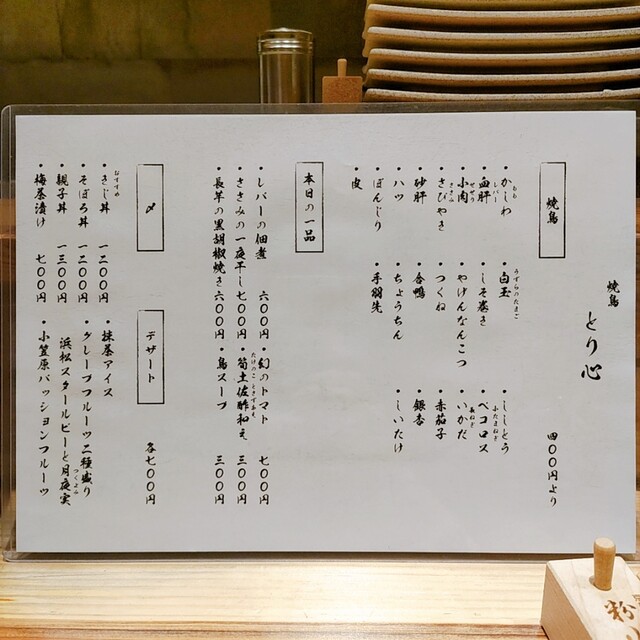 焼鳥 とり心
焼鳥
四〇〇円より
・かしわ
もも
・白玉
うずらのたまご
・ししとう
・血肝
レバー
・しそ巻き
・ペコロス
ふたまねぎ
・小肉
せせり
・やげんなんこつ
・いかだ
長ねぎ
・さびやき
ささみ
・つくね
・赤茄子
・砂肝
・合鴨
・銀杏
・ハツ
・ちょうちん
・しいたけ
・ぼんじり
・手羽先
・皮
本日の一品
・レバーの佃煮 六〇〇円
・幻のトマト 七〇〇円
・ささみの一夜干し 七〇〇円
・筍土佐酢和え 三〇〇円
たけのことさずあえ
・長芋の黒胡椒焼き 六〇〇円
・鳥スープ 三〇〇円
〆
・きじ丼 一二〇〇円
おすすめ
・そぼろ丼 一二〇〇円
・親子丼 一三〇〇円
・梅茶漬け 七〇〇円
デザート
各七〇〇円
・抹茶アイス
・グレープフルーツ二種盛り
浜松スタールビーと月夜実
つくよみ
・小笠原パッションフルーツ
粉